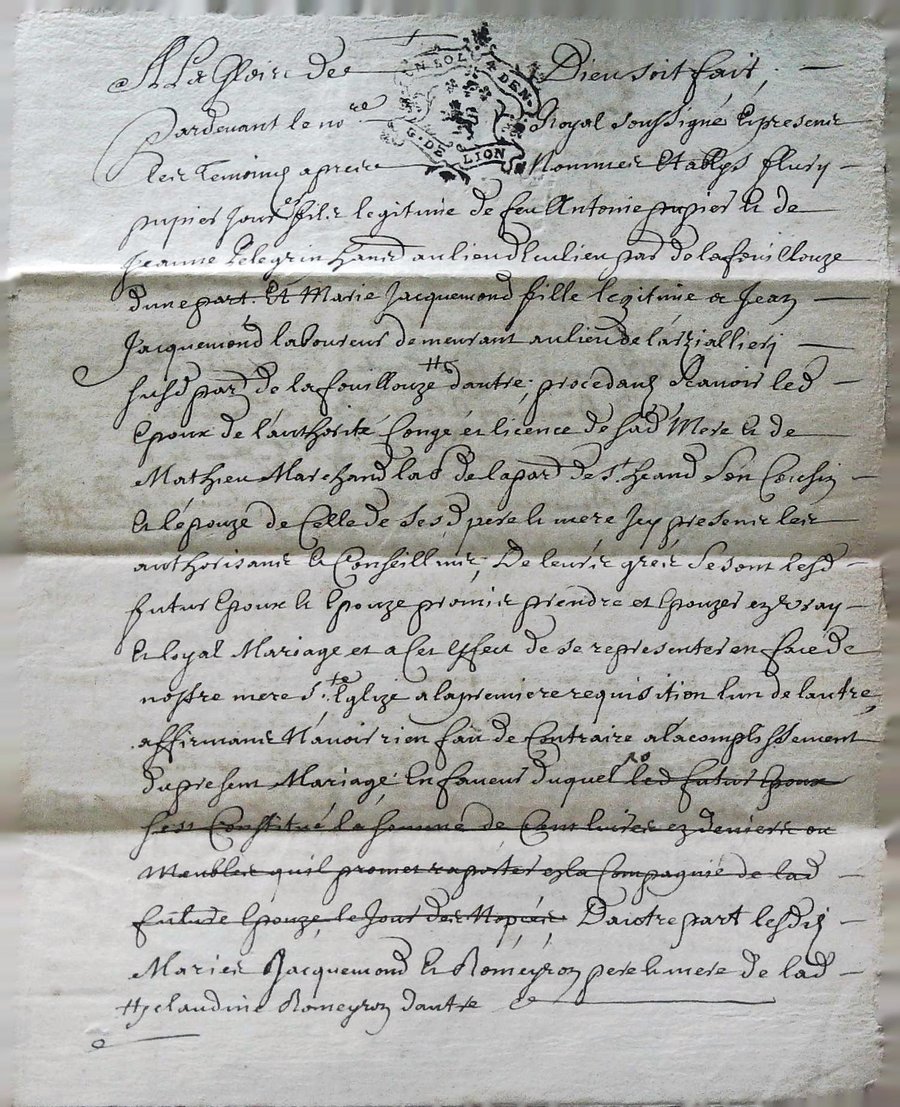 A La Gloire de Dieu soit fait,
N SOL 4 DEN
G. DE LION
Pardevant le nore Royal soussigné et presents
les temoins apres Nommes Etablys fleury
pupier Jour filz legitime de feu Antoine pupier et de
Jeanne Pelegrin hand au lieu de par de la fouillouze
d'une part Et Marie Jacquemond fille legitime a Jean
Jacquemond laboureur demeurant au lieu de l'arziallieri
susd par de la fouillouze # d'autre, procedans scavoir led
Epoux de l'authorité Congé et licence de sad Mere et de
Mathieu Marchand lab de la par de st heand son Cousin
et l'épouze de Celle de sesd pere et mere Icy presents les
authorisants et Conseillants, De leurs grés se sont lesd
futur Epoux et Epouze promis prendre et Epouzer en vray
et loyal Mariage et a cet effect de se representer en face de
nostre mere Ste Eglize a la premiere requisition l'un de l'autre,
affirmants N'avoir rien fait de Contraire a l'acomplissement
du present Mariage En faveur duquel led futur Epoux
s'est Constitué la somme de Cent livres en deniers ou
Meubles qu'il promet raporter en la Compagnie de lad
future Epouze le Jour des Nopces, D'autre part lesd
Maries Jacquemond et Romeyron pere et mere de lad
# claudine Romeyron d'autre